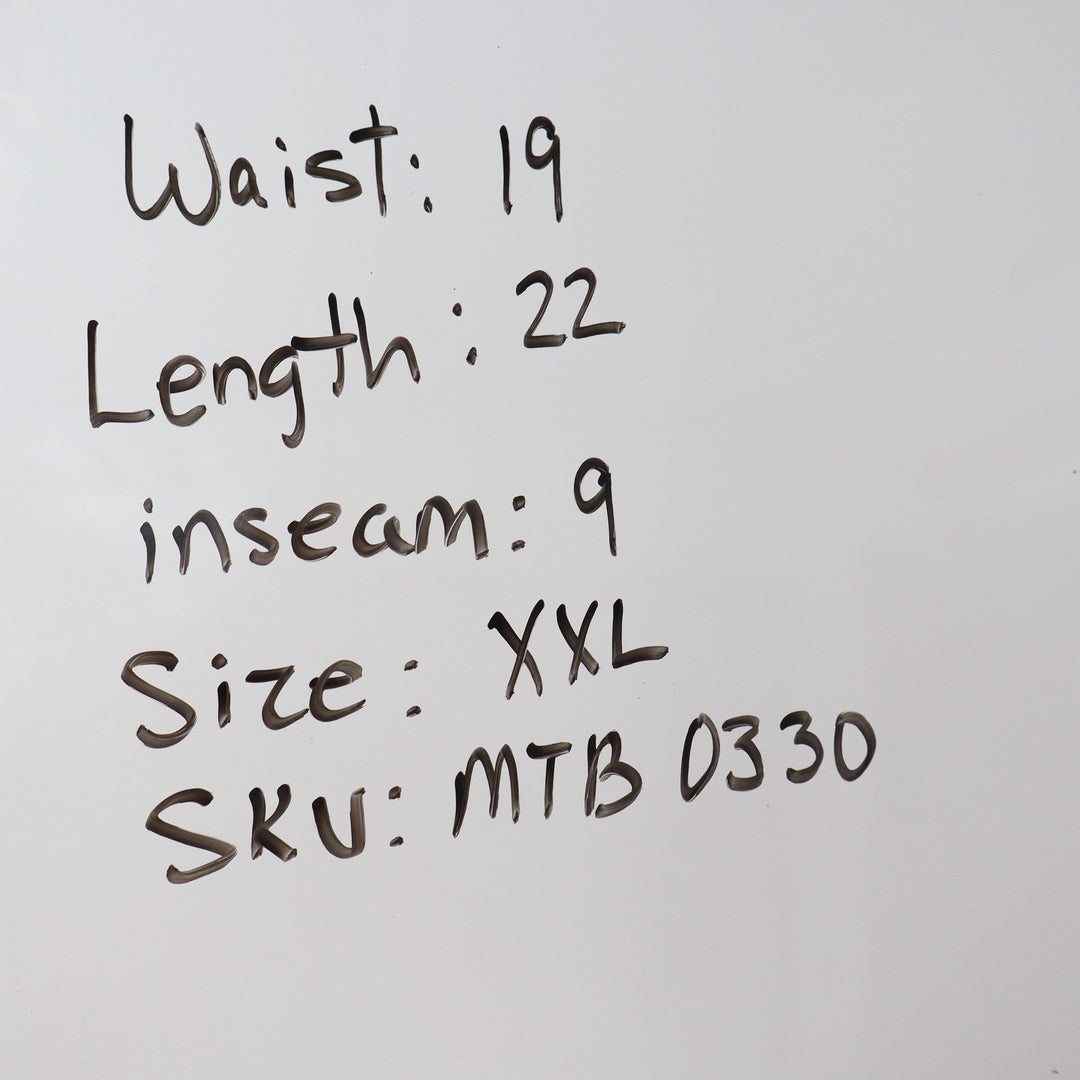 Waist: 19
Length: 22
inseam: 9
Size: XXL
SKU: MTB 0330